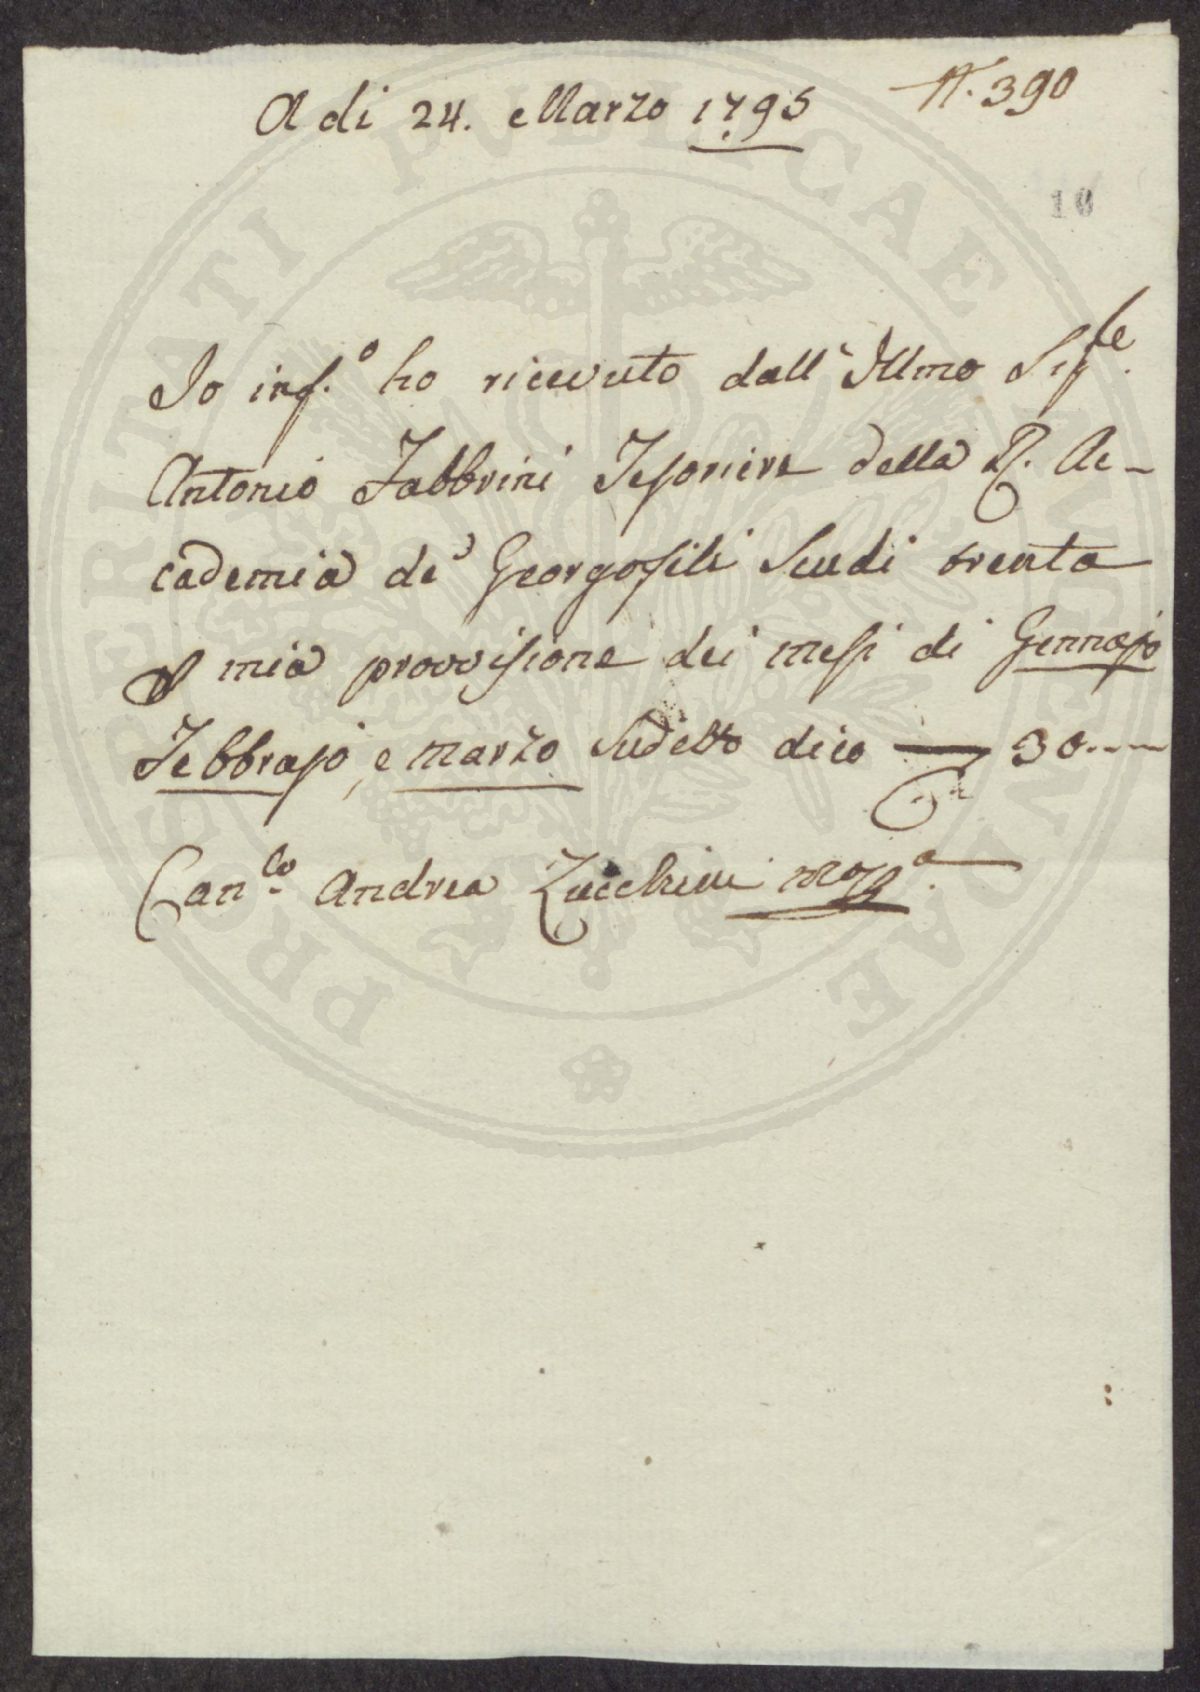 N. 390
A di 24. Marzo 1795
10
Io inf.o ho ricevuto dall' Illmo Sig.re
Antonio Fabbrini Tesoriere della R. Ac-
cademia de' Georgofili Scudi trenta
mia provvisione dei mesi di Gennajo
Febbrajo, e Marzo sudetto dico 30
Can.co Andrea Zucchini mop.a
PROSPERITATI PUBLICAE AUGENDAE